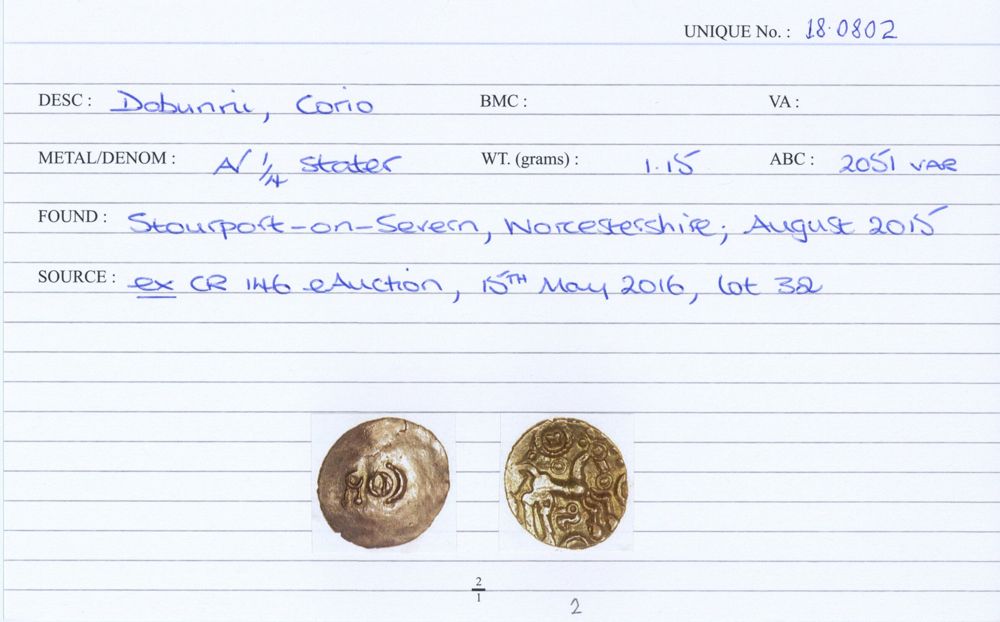 UNIQUE No. : 18.0802
DESC : Dobunni, Corio BMC : VA :
METAL/DENOM : A/ 1/4 stater WT. (grams) : 1.15 ABC : 2051 VAR
FOUND : Stourport-on-Severn, Worcestershire; August 2015
SOURCE : ex CR 146 eAuction, 15TH May 2016, lot 32
2
1
2